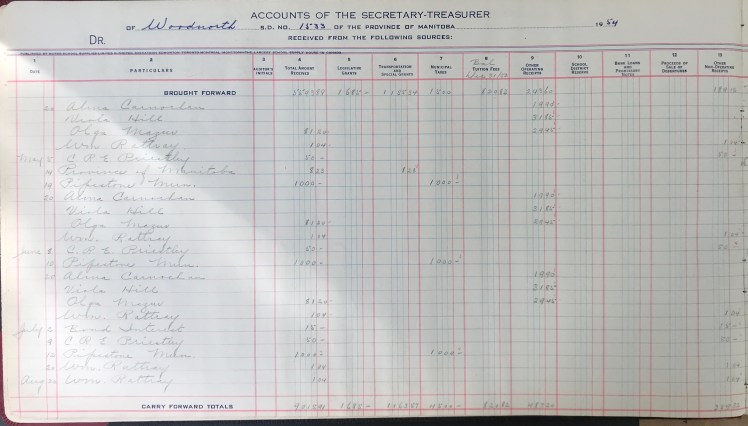 ACCOUNTS OF THE SECRETARY-TREASURER
OF Woodnorth S.D. NO. 1533 OF THE PROVINCE OF MANITOBA 1954
DR. RECEIVED FROM THE FOLLOWING SOURCES:
1 2 3 4 5 6 7 8 9 10 11 12 13
DATE PARTICULARS AUDITOR'S INITIALS TOTAL AMOUNT RECEIVED LEGISLATIVE GRANTS TRANSPORTATION AND SPECIAL GRANTS MUNICIPAL TAXES TUITION FEES OTHER OPERATING RECEIPTS SCHOOL DISTRICT RESERVE BANK LOANS AND PROMISSORY NOTES PROCEEDS OF SALE OF DEBENTURES OTHER NON-OPERATING RECEIPTS
BROUGHT FORWARD 1685 -
20 Alma Carnochan 1990
Viola Hill 3185
Olga Magus 8120 2945
Wm Rattray 1.04 1.04
May 5 C.P.E. Priestley 50 - 50 -
14 Province of Manitoba 825 825
19 Pipestone Mun. 1000 - 1000 -
20 Alma Carnochan 1990
Viola Hill 3185
Olga Magus 8120 2945
Wm. Rattray 1.04 1.04
June 8 C.P.E. Priestley 50 - 50 -
Pipestone Mun. 1000 - 1000 -
20 Alma Carnochan 1990
Viola Hill 3185
Olga Magus 8120 2945
Wm. Rattray 104 1.04
July Bond Interest 15 - 15 -
9 C.P.E. Priestley 50 - 50 -
12 Pipestone Mun 1000 - 1000 -
20 Wm. Rattray 1.04 1.04
Aug 20 Wm. Rattray 1.04 1.04
CARRY FORWARD TOTALS 1685 - 4500 - 82082